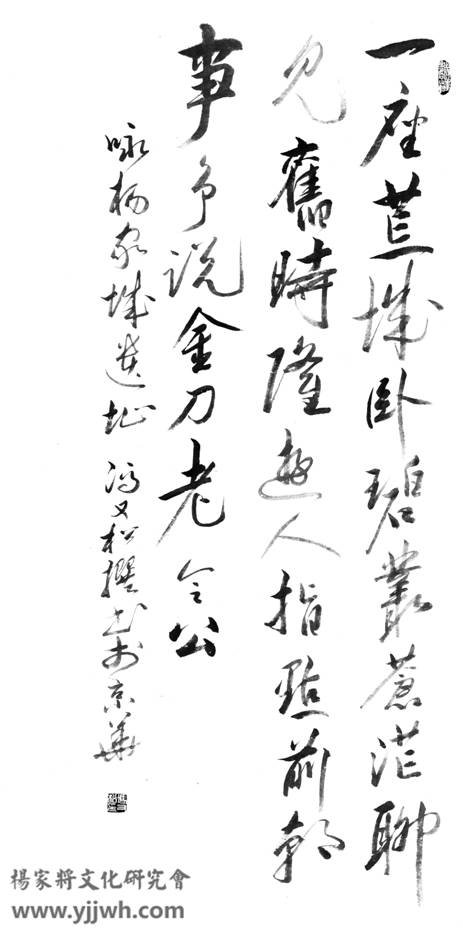 一座荒城卧碧叢蒼茫聊
見舊時隆遊人指點前朝
事争说金刀老令公
咏杨家城遗址 冯文松撰书于京華
楊家將文化研究會
www.yjjwh.com